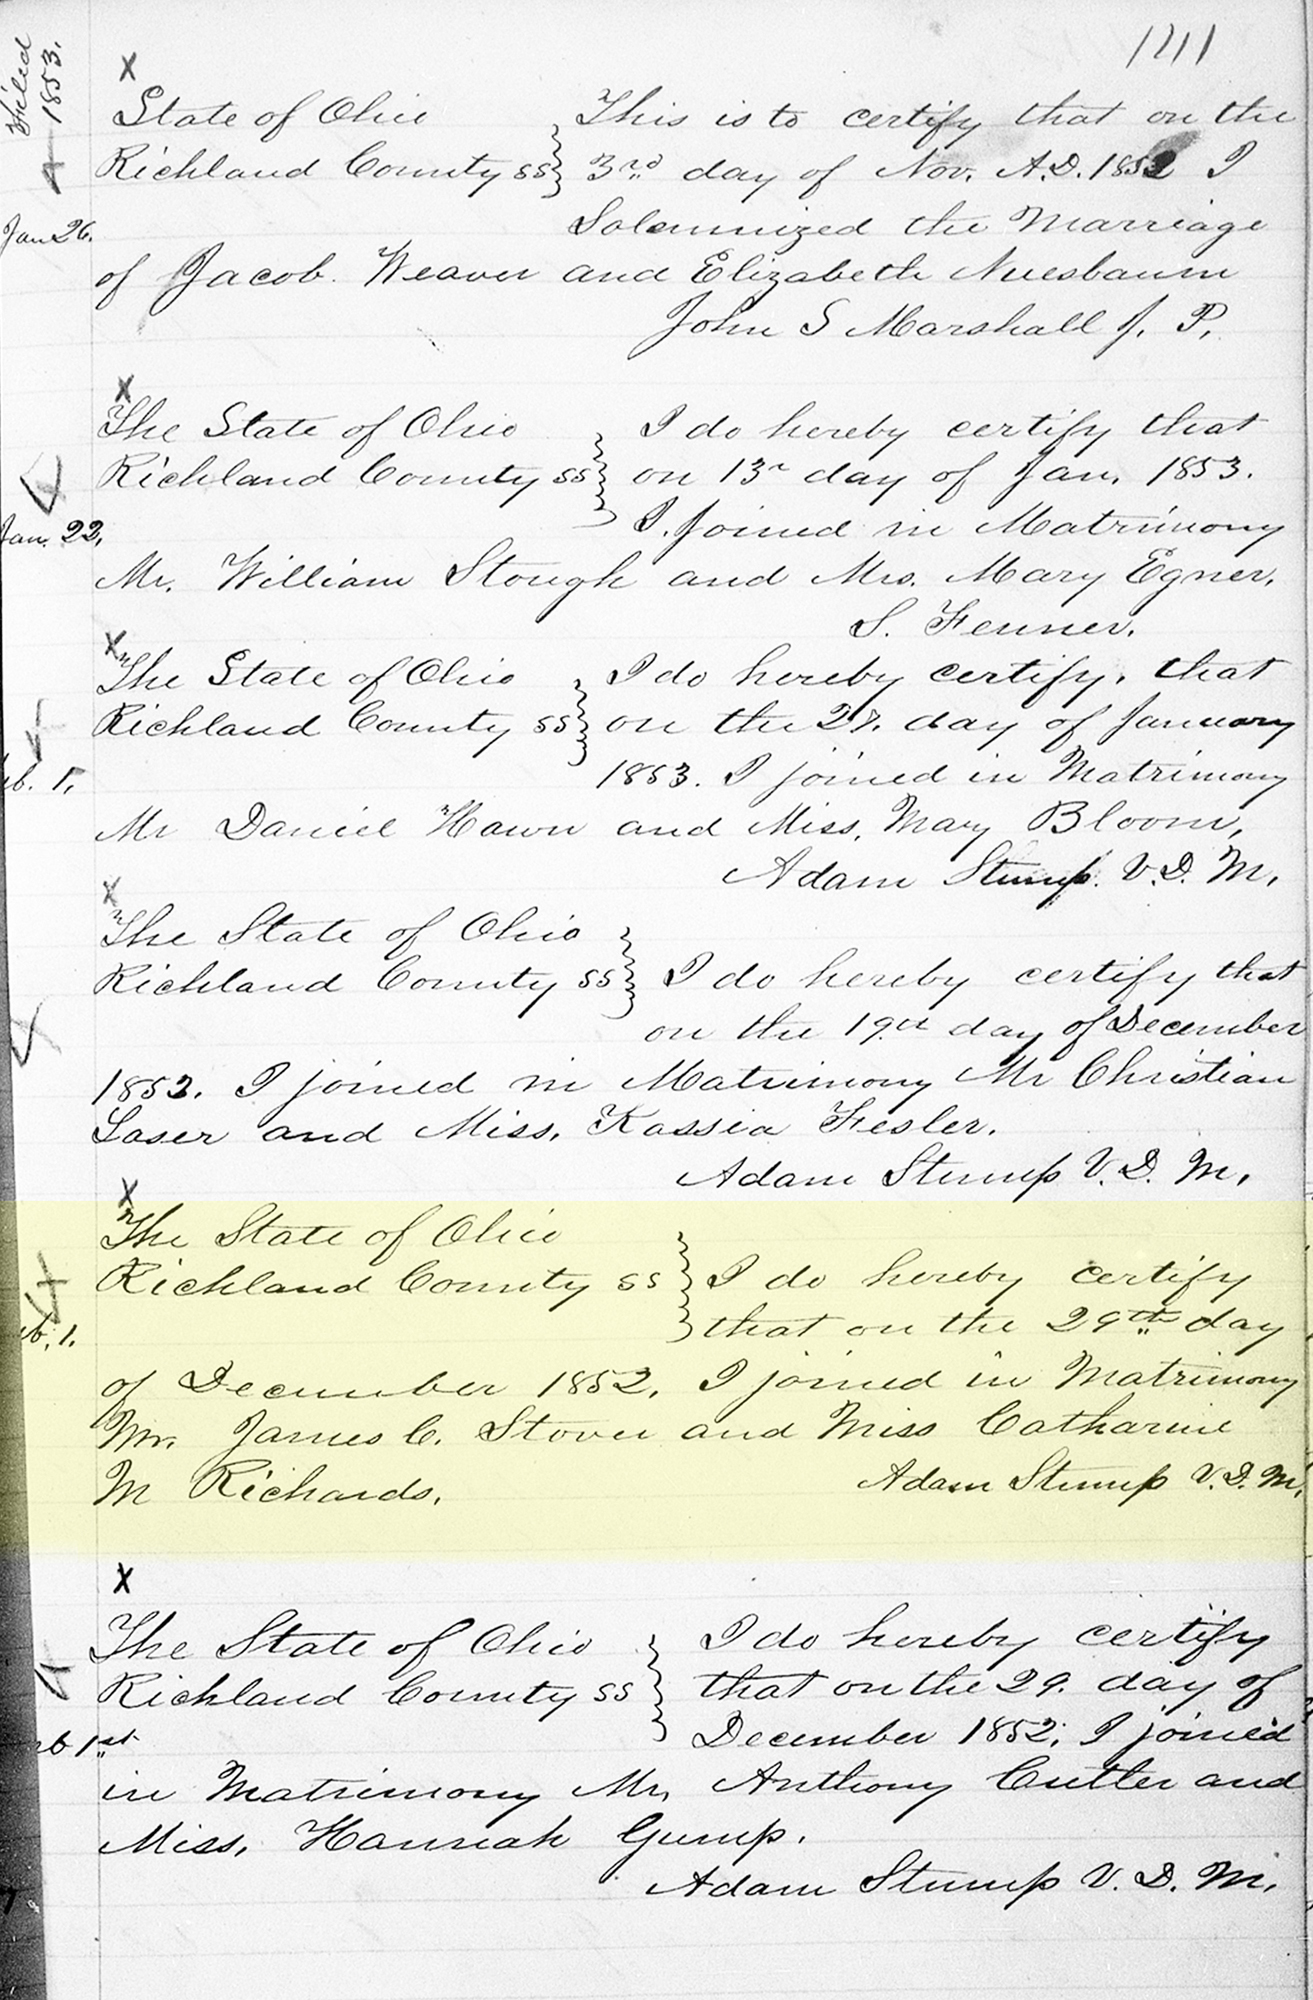 1211
Filed
1853.
X
State of Ohio
This is to certify that on the
Richland County ss
3rd day of Nov. A.D. 1852 I
Jan 26.
Solemnized the Marriage
of Jacob. Weaver and Elizabeth Nuesbaum
John S Marshall J. P.
X
The State of Ohio
I do hereby certify that
Richland County ss
on 13r day of Jan. 1853.
Jan. 22.
I. joined in Matrimony
Mr. William Stough and Mrs. Mary Egner.
S. Fenner.
X
The State of Ohio
I do hereby certify, that
Richland County ss
on the 27. day of January
eb. 1.
1853. I joined in Matrimony
Mr Daniel Hawn and Miss, Mary Bloom,
Adam Stump. V. D. M.
X
The State of Ohio
Richland County ss
I do hereby certify that
on the 19th day of December
1852. I joined in Matrimony Mr Christian
Laser and Miss, Kassia Fesler.
Adam Stump V. D. M.
X
The State of Ohio
Richland County ss
I do hereby certify
eb. 1.
that on the 29th day
of December 1852, I joined in Matrimony
Mr. James C. Stover and Miss Catharine
M Richards.
Adam Stump V. D. M.
X
The State of Ohio
I do hereby certify
Richland County ss
that on the 29. day of
eb 1st
December 1852, I joined
in Matrimony Mr, Anthony Cutler and
Miss, Hannah Gump.
Adam Stump V. D. M.